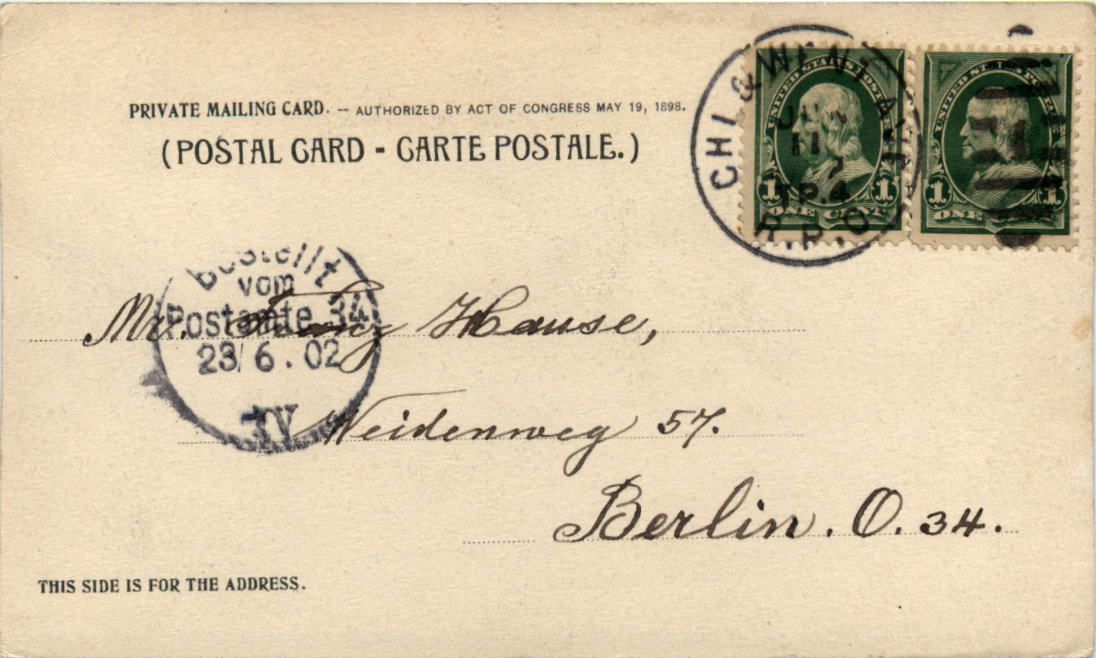 PRIVATE MAILING CARD. — AUTHORIZED BY ACT OF CONGRESS MAY 19, 1898.
(POSTAL CARD - CARTE POSTALE.)
CHI. & WAN. A
JUN
11
2
TR.4
R.P.O.
UNITED STATES POSTAGE
1 1
ONE CENT
UNITED STATES POSTAGE
1 1
ONE CENT
Bestellt
vom
Postamte 34
23/6.02
IV
Mr. Franz Hause,
Weidenweg 57.
Berlin. O. 34.
THIS SIDE IS FOR THE ADDRESS.